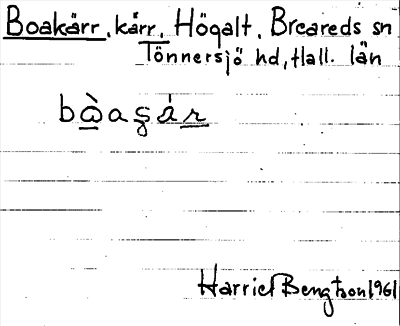 Boakärr, kärr, Högalt, Breareds sn
Tönnersjö hd, Hall. län
Harriet Bengtson 1961